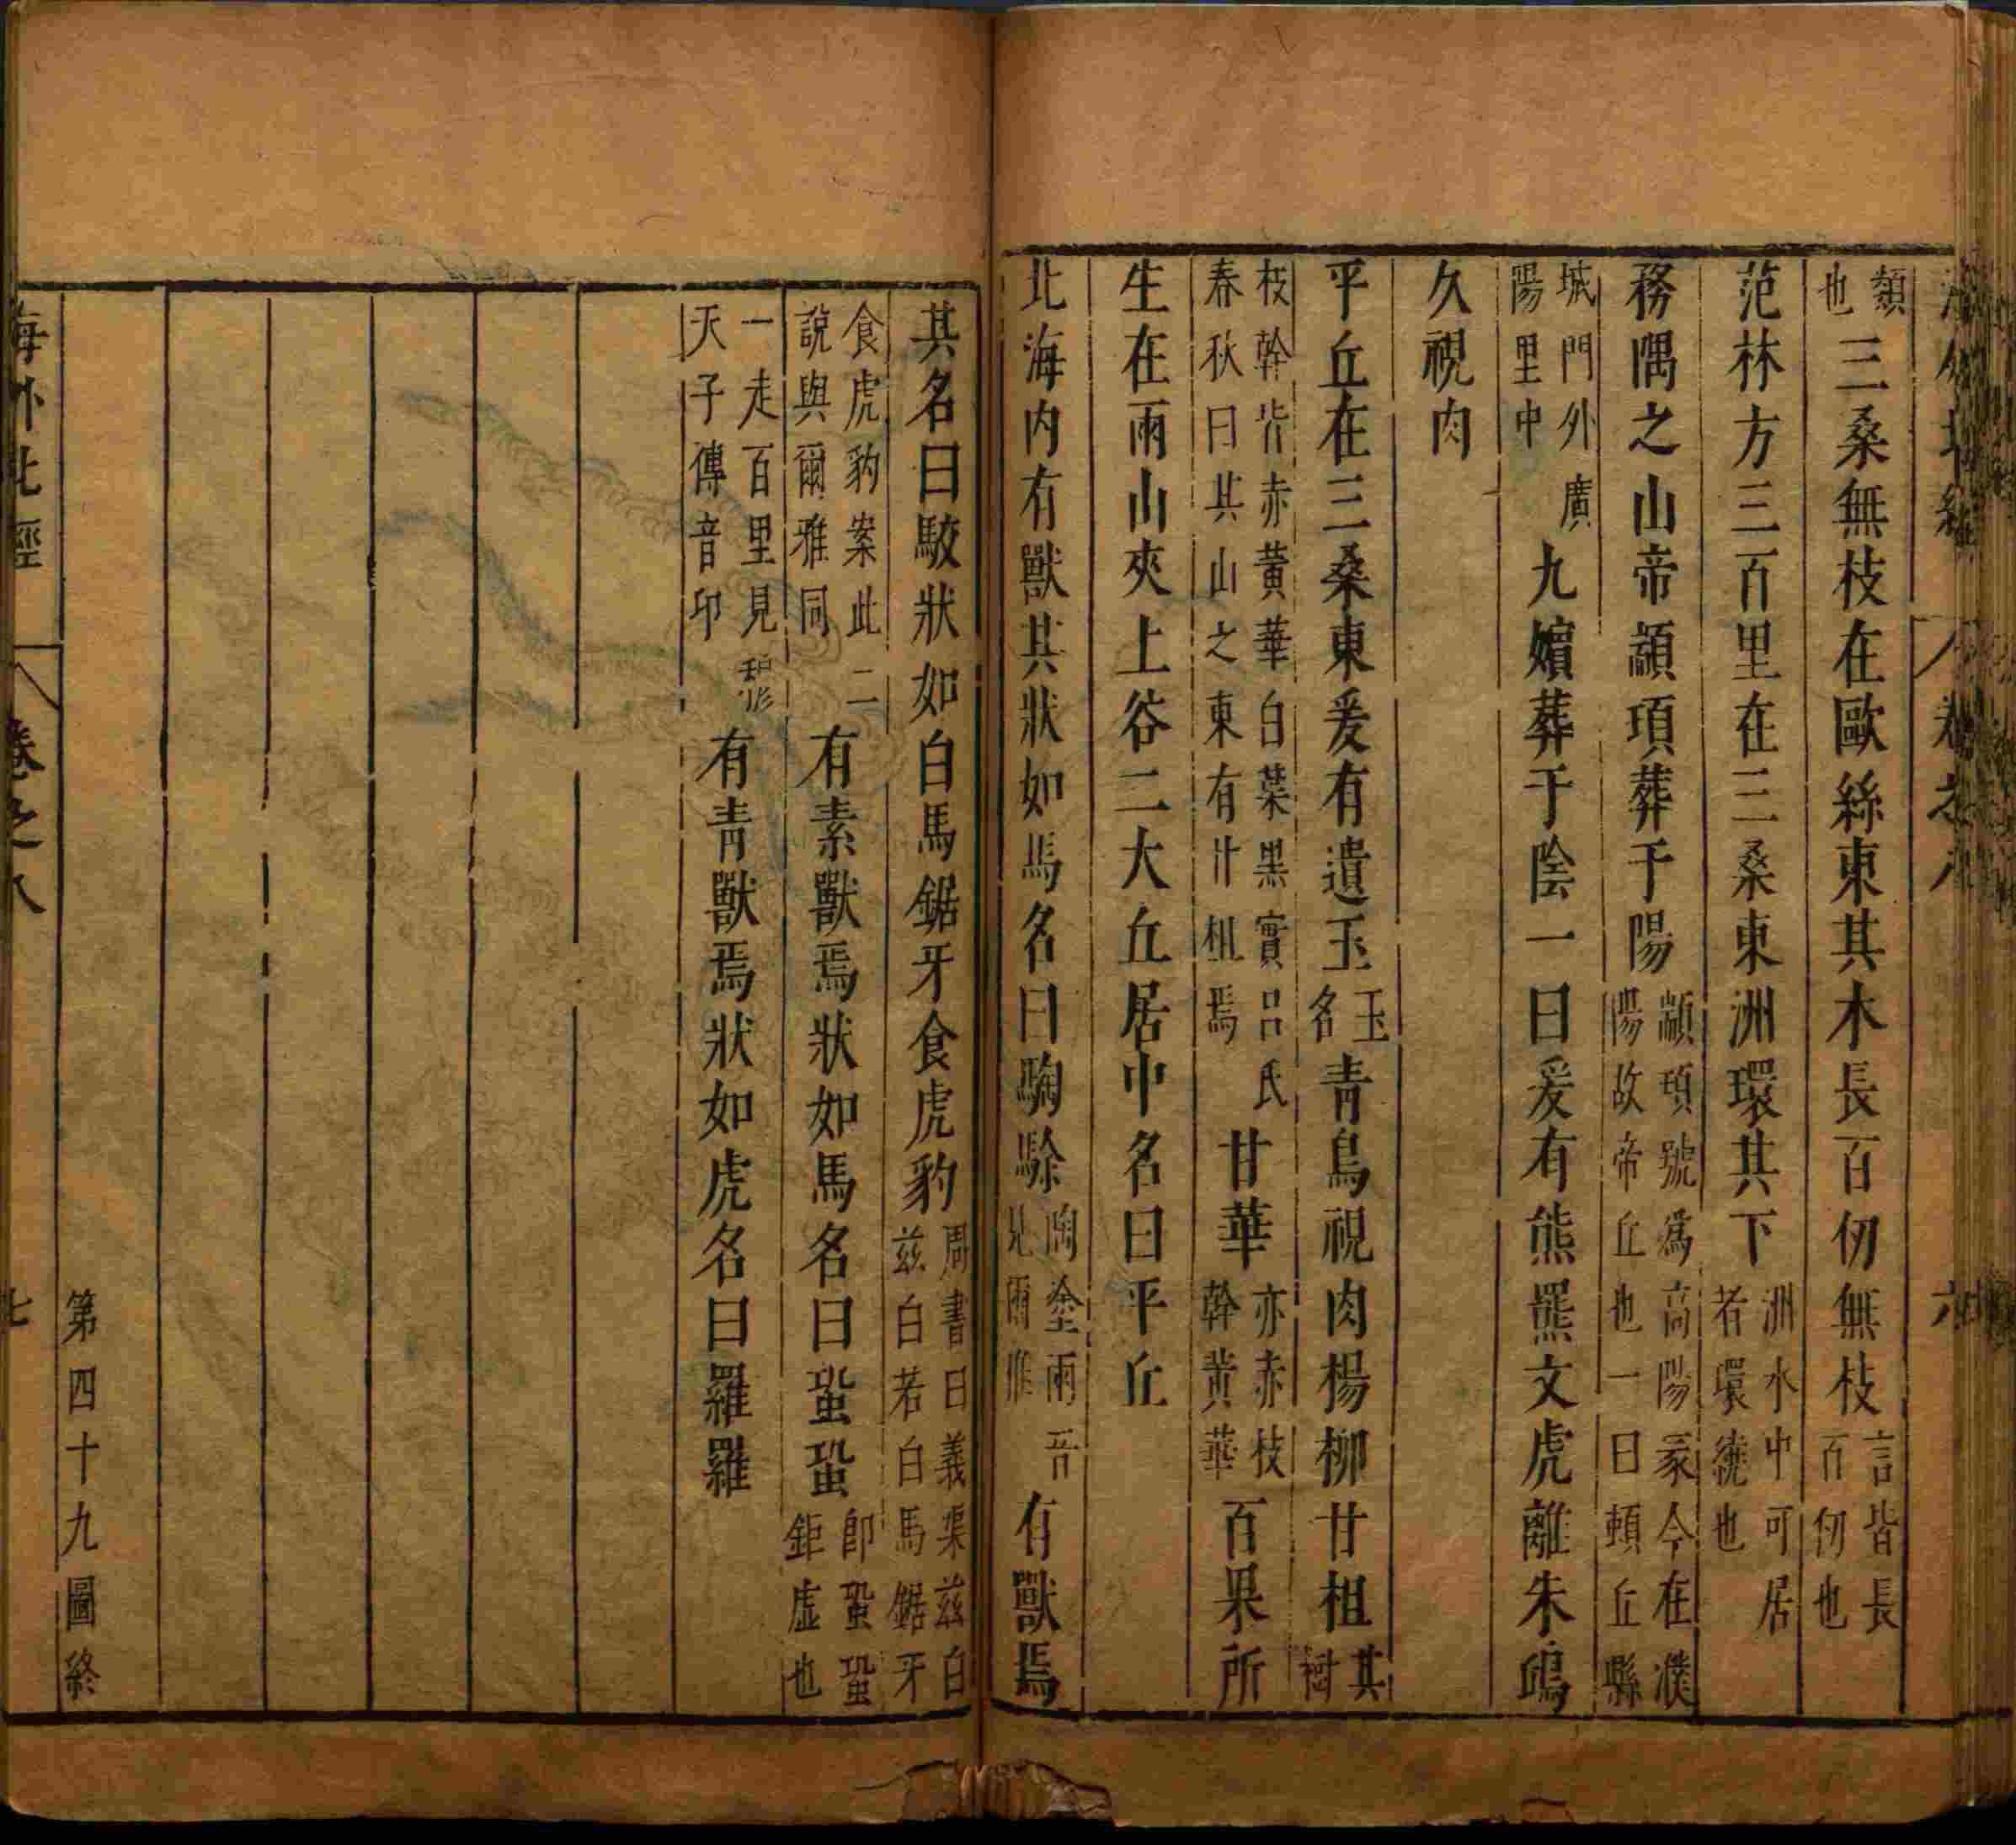 海外北經 卷之八 六
類也三桑無枝在歐絲東其木長百仞無枝言皆長百仞也
范林方三百里在三桑東洲環其下洲水中可居者環繞也
務隅之山帝顓頊葬于陽顓頊號爲高陽冢今在濮陽故帝丘也一曰頓丘縣
城門外廣陽里中九嬪葬于陰一曰爰有熊羆文虎離朱鴟
久視肉
平丘在三桑東爰有遺玉玉名青鳥視肉楊柳甘柤其樹
枝幹皆赤黃華白葉黑實呂氏春秋曰其山之東有汁柤焉甘華亦赤枝幹黃華百果所
生在兩山夾上谷二大丘居中名曰平丘
北海內有獸其狀如馬名曰騊駼陶塗兩音見爾雅有獸焉
其名曰駮狀如白馬鋸牙食虎豹周書曰義渠茲白茲白若白馬鋸牙
食虎豹案此二說與爾雅同有素獸焉狀如馬名曰蛩蛩卽蛩蛩鉅虛也
一走百里見穆天子傳音邛有青獸焉狀如虎名曰羅羅
第四十九圖終
海外北經 卷之八 七